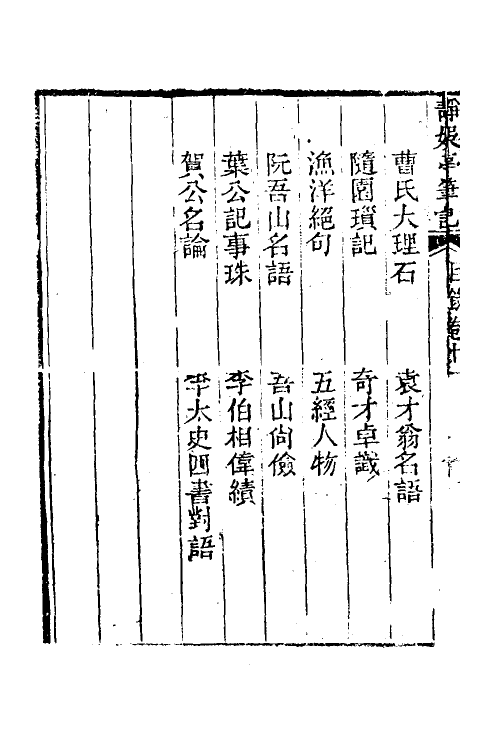 靜娛亭筆記 目錄卷十
曹氏大理石 袁才翁名語
隨園瑣記 奇才卓識
漁洋絕句 五經人物
阮吾山名語 吾山尚儉
葉公記事珠 李伯相偉績
賀公名論 太史四書對語